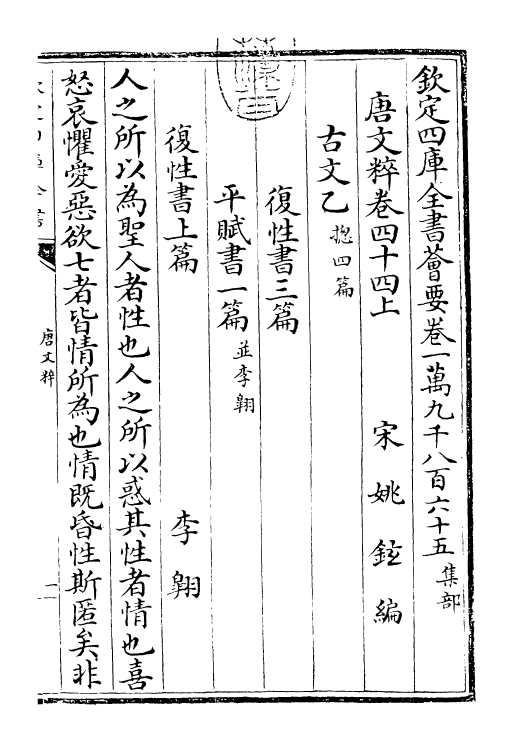 欽定四庫全書薈要卷一萬九千八百六十五 集部
唐文粹卷四十四上 宋 姚鉉 編
古文乙 摠四篇
復性書三篇
平賦書一篇 並李翺
復性書上篇 李翺
人之所以為聖人者性也人之所以惑其性者情也喜
怒哀懼愛惡欲七者皆情所為也情既昏性斯匿矣非
唐文粹